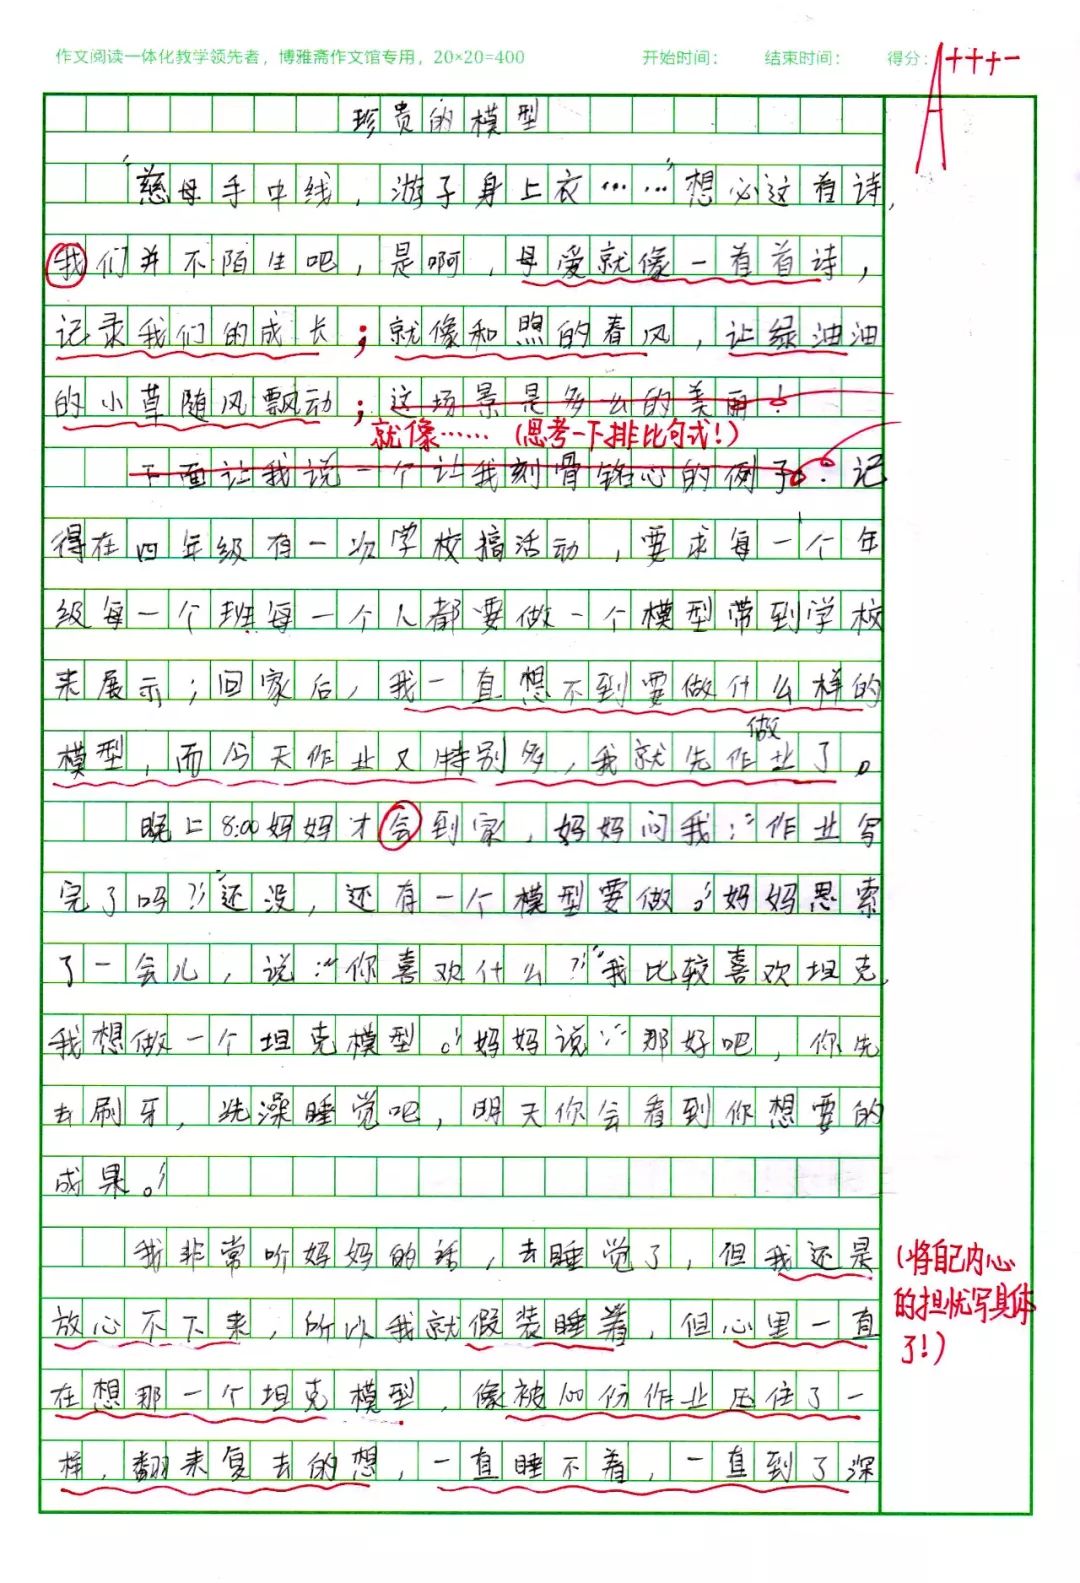 作文阅读一体化教学领先者，博雅斋作文馆专用，20×20=400 开始时间： 结束时间： 得分：A+++-
珍贵的模型
“慈母手中线，游子身上衣……”想必这首诗，
我们并不陌生吧，是啊，母爱就像一首首诗，
记录我们的成长；就像和煦的春风，让绿油油
的小草随风飘动；这场景是多么的美丽！
就像……（思考一下排比句式！）
下面让我说一个让我刻骨铭心的例子：记
得在四年级有一次学校搞活动，要求每一个年
级每一个班每一个人都要做一个模型带到学校
来展示；回家后，我一直想不到要做什么样的
模型，而今天作业又特别多，我就先做作业了。
晚上8:00妈妈才会到家，妈妈问我：“作业写
完了吗？”“还没，还有一个模型要做。”妈妈思索
了一会儿，说：“你喜欢什么？”“我比较喜欢坦克，
我想做一个坦克模型。”妈妈说：“那好吧，你先
去刷牙，洗澡睡觉吧，明天你会看到你想要的
成果。”
我非常听妈妈的话，去睡觉了，但我还是
（将自己内心
放心不下来，所以我就假装睡着，但心里一直
的担忧写具体
了！）
在想那一个坦克模型，像被100份作业压住了一
样，翻来复去的想，一直睡不着，一直到了深